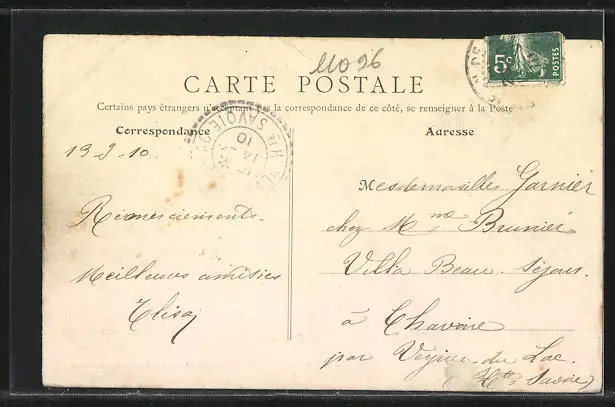 11096
CARTE POSTALE
Certains pays étrangers n'acceptant pas la correspondance de ce côté, se renseigner à la Poste
Correspondance
13-2-10.
Remerciements.
Meilleures amitiés
Elisa
Adresse
Mesdemoiselles Garnier
chez Mme Brunier
Villa Beau-Séjour
à Chavoire
par Veyrier-du-Lac
(Hte Savoie)
5c
POSTES
HTE SAVOIE
14
10